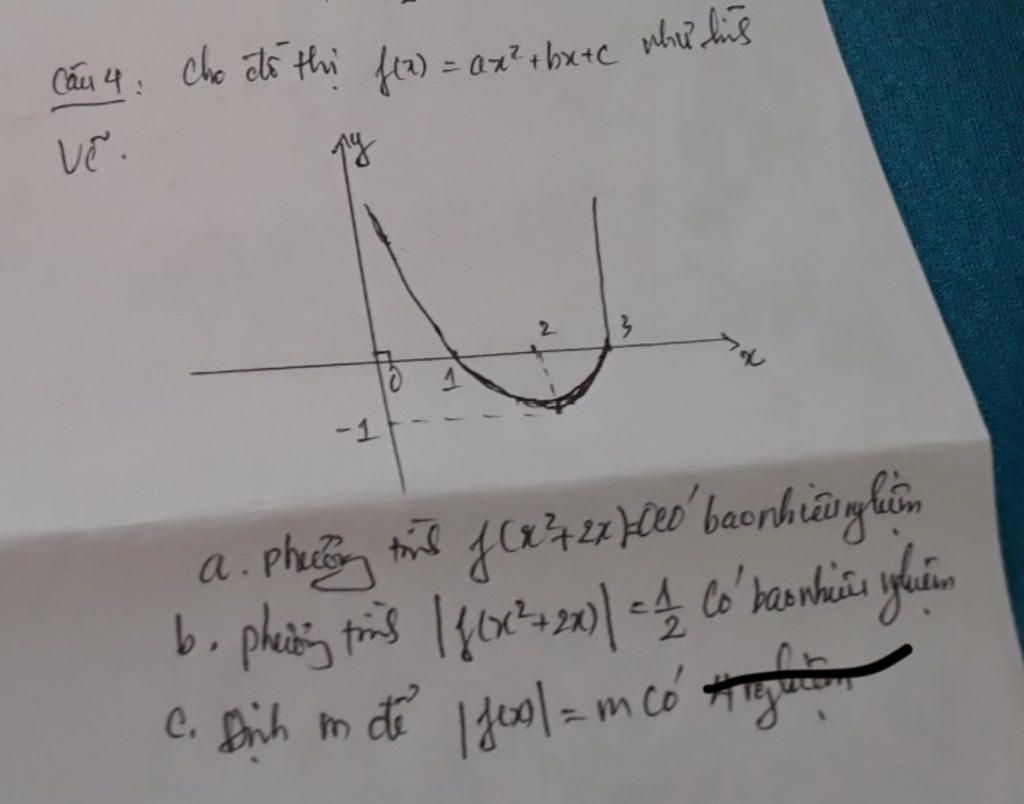 Câu 4: Cho đồ thị f(x) = ax²+bx+c như hình
Vẽ.
y
2
3
x
0
1
-1
a. phương trình f(x²+2x)=0 có bao nhiêu nghiệm
b. phương trình |f(x²+2x)| = 1/2 Có bao nhiêu nghiệm
c. Định m để |f(x)| = m có